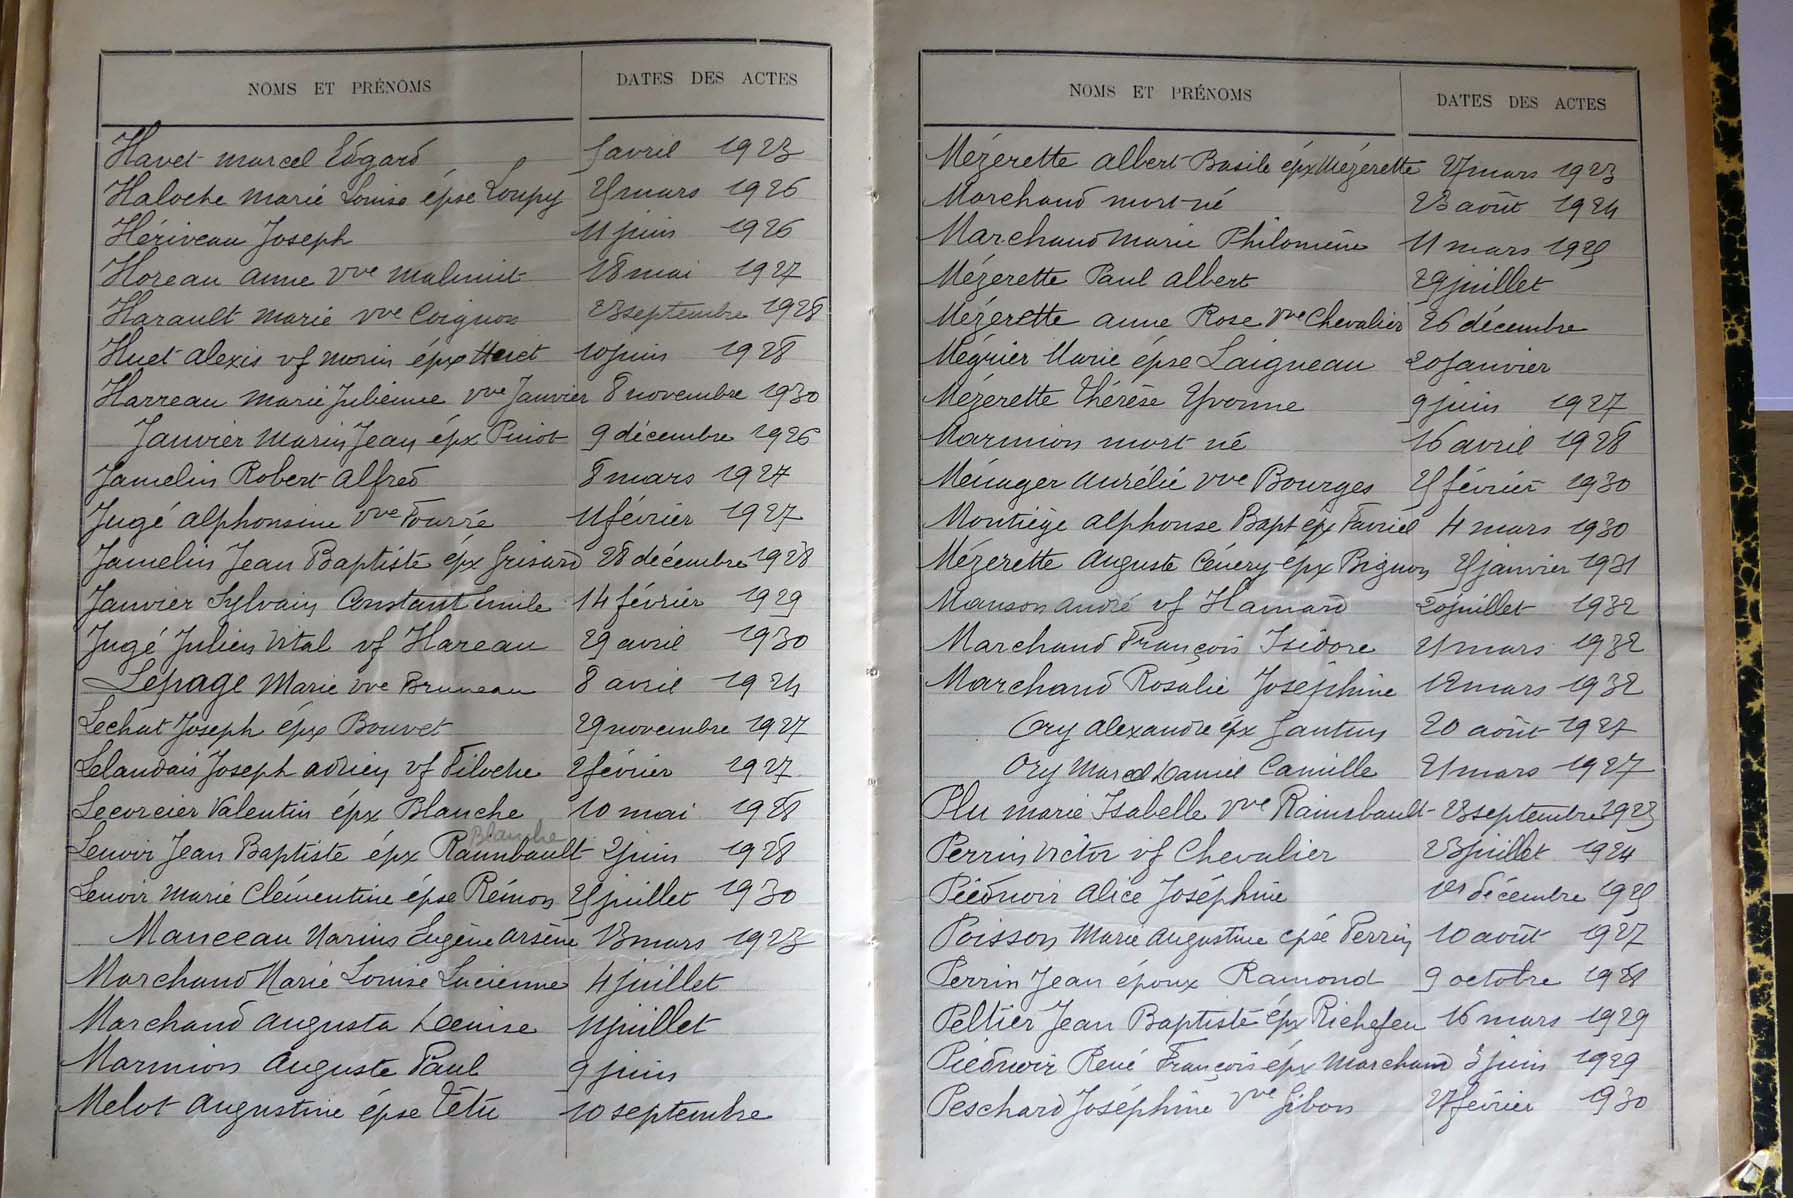 NOMS ET PRÉNOMS DATES DES ACTES
Havet marcel Edgard 5 avril 1923
Haloche marie Louise épse Loupy 25 mars 1926
Hériveau Joseph 11 juin 1926
Horeau anne vve 18 mai 1927
Harault marie vve Coignon 23 septembre 1928
Huet alexis vf morin épx 10 juin 1928
Harreau marie Julienne vve Janvier 8 novembre 1930
Janvier marin Jean épx Piriot 9 décembre 1926
Jamelin Robert alfred 8 mars 1927
Jugé alphonsine vve Fourré 11 février 1927
Jamelin Jean Baptiste épx Grisard 28 décembre 1928
Janvier Sylvain Constant Emile 14 février 1929
Jugé Julien Vital vf Hareau 29 avril 1930
Lepage Marie vve Bruneau 8 avril 1924
Lechat Joseph épx Bouvet 29 novembre 1927
Lelandais Joseph adrien vf Filoche 2 février 1927
Lecorcier Valentin épx Blanche 10 mai 1928
Blanche
Lenoir Jean Baptiste épx Raimbault 2 juin 1928
Lenoir marie Clémentine épse Rémon 25 juillet 1930
Manceau Marius Eugène arsène 13 mars 1923
Marchand Marie Louise Lucienne 4 juillet
Marchand augusta Denise 11 juillet
Marmion auguste Paul 9 juin
Melot augustine épse Têtu 10 septembre
NOMS ET PRÉNOMS DATES DES ACTES
Mézerette albert Basile épx Mézerette 27 mars 1923
Marchand mort-né 23 août 1924
Marchand marie Philomène 11 mars 1925
Mézerette Paul albert 29 juillet
Mézerette anne Rose vve Chevalier 26 décembre
Mégrier Marie épse Laigneau 20 janvier
Mézerette Thérèse Yvonne 9 juin 1927
Marmion mort né 16 avril 1928
Ménager aurélie vve Bourges 25 février 1930
Montiège alphonse Bapt épx Favriel 4 mars 1930
Mézerette auguste Cénery épx Bignon 25 janvier 1931
Manson andré vf Hamard 20 juillet 1932
Marchand François Isidore 21 mars 1932
Marchand Rosalie Joséphine 12 mars 1932
Ory alexandre épx Gautun 20 août 1927
Ory Marcel Daniel Camille 21 mars 1927
Plu marie Isabelle vve Raimbault 23 septembre 1923
Perrin Victor vf Chevalier 23 juillet 1924
Piednoir alice Joséphine 1er décembre 1925
Poisson Marie augustine épse Perrin 10 août 1927
Perrin Jean époux Ramond 9 octobre 1928
Peltier Jean Baptiste épx Richefeu 16 mars 1929
Piednoir René François épx marchand 5 juin 1929
Peschard Joséphine vve Gibon 27 février 1930